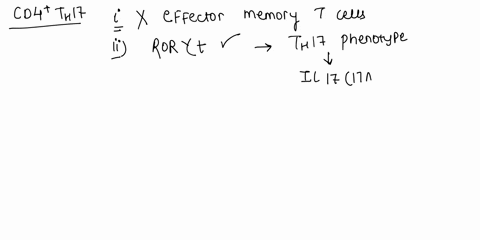 CD4+ TH17 i X effector memory T cells
ii) RORγt ✓ → TH17 phenotype
↓
IL 17 (17A